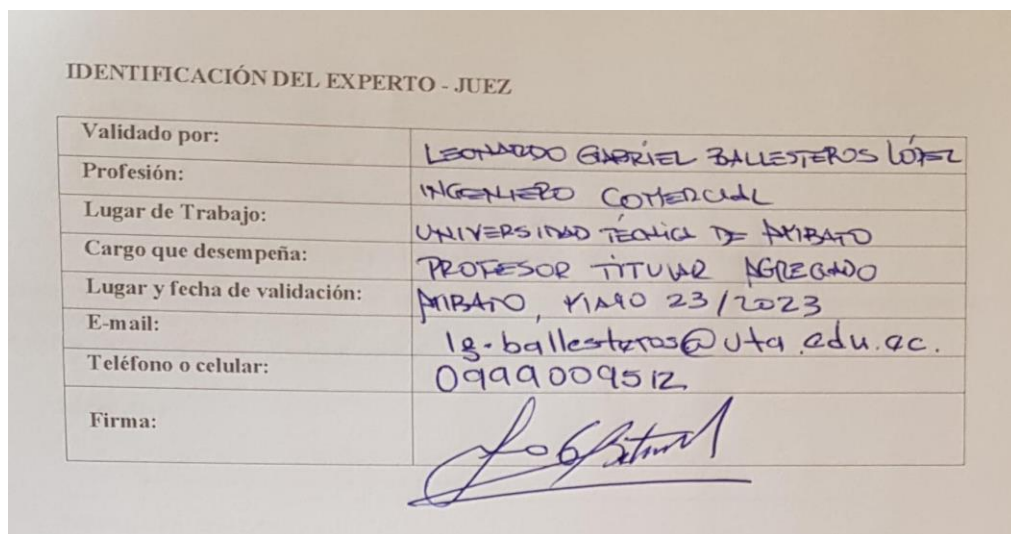 IDENTIFICACIÓN DEL EXPERTO - JUEZ
Validado por: LEONARDO GABRIEL BALLESTEROS LÓPEZ
Profesión: INGENIERO COMERCIAL
Lugar de Trabajo: UNIVERSIDAD TÉCNICA DE AMBATO
Cargo que desempeña: PROFESOR TITULAR AGREGADO
Lugar y fecha de validación: AMBATO, MAYO 23/2023
E-mail: lg.ballesteros@uta.edu.ec.
Teléfono o celular: 0999009512
Firma: